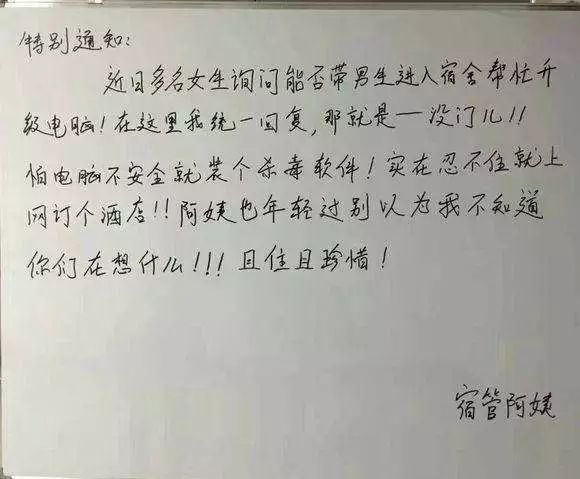 特别通知：
近日多名女生询问能否带男生进入宿舍帮忙升
级电脑！在这里我统一回复，那就是——没门儿！！
怕电脑不安全就装个杀毒软件！实在忍不住就上
网订个酒店！！阿姨也年轻过别以为我不知道
你们在想什么！！！且住且珍惜！
宿管阿姨